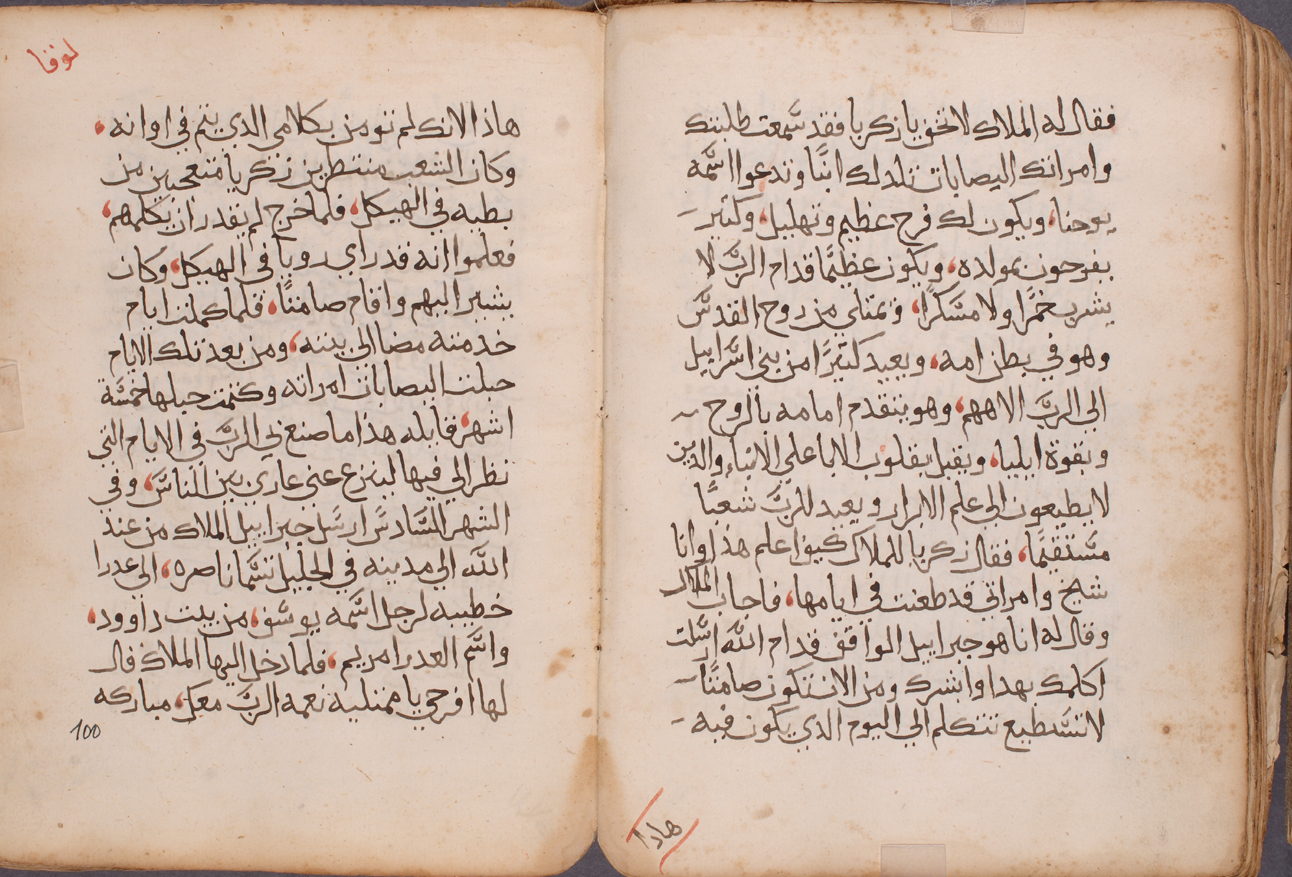 فقال له الملاك لا تخف يا زكريا فقد سمعت طلبتك
وامراتك اليصابات تلد لك ابنًا وتدعوا اسمه
يوحنا، ويكون لك فرح عظيم وتهليل، وكثير
يفرحون بمولده، ويكون عظيمًا قدام الرب لا
يشرب خمرًا ولا مسكرًا، ويمتلي من روح القدس
وهو في بطن امه، ويعيد كثيرًا من بني اسراييل
الى الرب الاههم، وهو يتقدم امامه بالروح
وبقوة ايليا، ويقبل بقلوب الابا على الابناء والذين
لا يطيعون الى علم الابرار ويعيد للرب شعبًا
مستقيمًا، فقال زكريا للملاك كيف اعلم هذا وانا
شيخ وامراتي قد طعنت في ايامها، فاجاب الملاك
وقال له انا هو جبراييل الواقف قدام الله ارسلت
اكلمك بهدا وابشرك ومن الان تكون صامتًا
لا تستطيع تتكلم الي اليوم الدي يكون فيه
هادا
لوقا
هاذا لانك لم تومن بكلامي الدي يتم في اوانه،
وكان الشعب منتظرين زكريا متعجبين من
بطيه في الهيكل، فلما خرج لم يقدر ان يكلمهم،
فعلموا انه قد راي رويا في الهيكل، وكان
يشير اليهم واقام صامتًا، فلما كملت ايام
خدمته مضا الي بيته، ومن بعد تلك الايام
حبلت اليصابات امراته وكتمت حبلها خمسة
اشهر، قايله هذا ما صنع بي الرب في الايام التي
نظر الي فيها لينزع عني عاري بين الناس، وفي
الشهر السادس ارسل جبراييل الملاك من عند
الله الي مدينه في الجليل تسما ناصره، الى عدرا
خطيبه لرجل اسمه يوسف، من بيت داوود،
واسم العدرا مريم، فلما دخل اليها الملاك قال
لها افرحي يا ممتليه نعمه الرب معك، مباركه
100